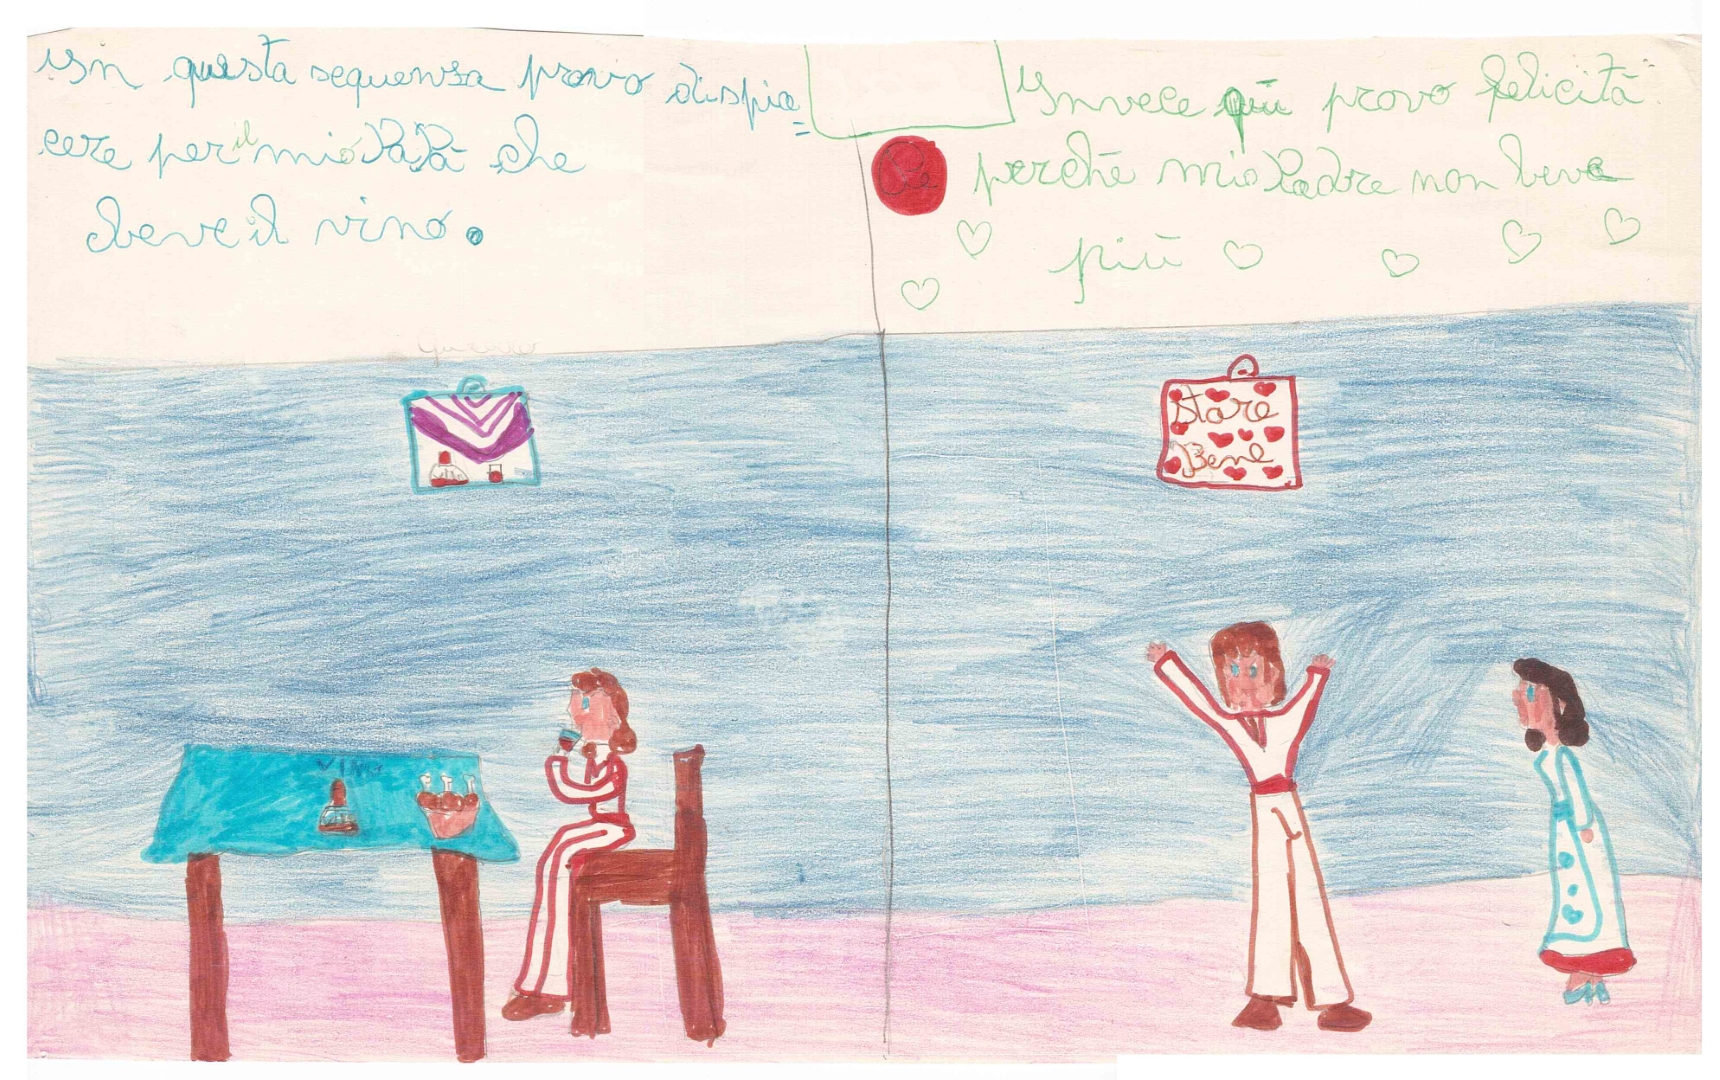 In questa sequenza provo dispia=
cere per il mio PaPà che
beve il vino.
Invece qui provo felicità
perchè mio Padre non beve
più
Stare
Bene
VINO